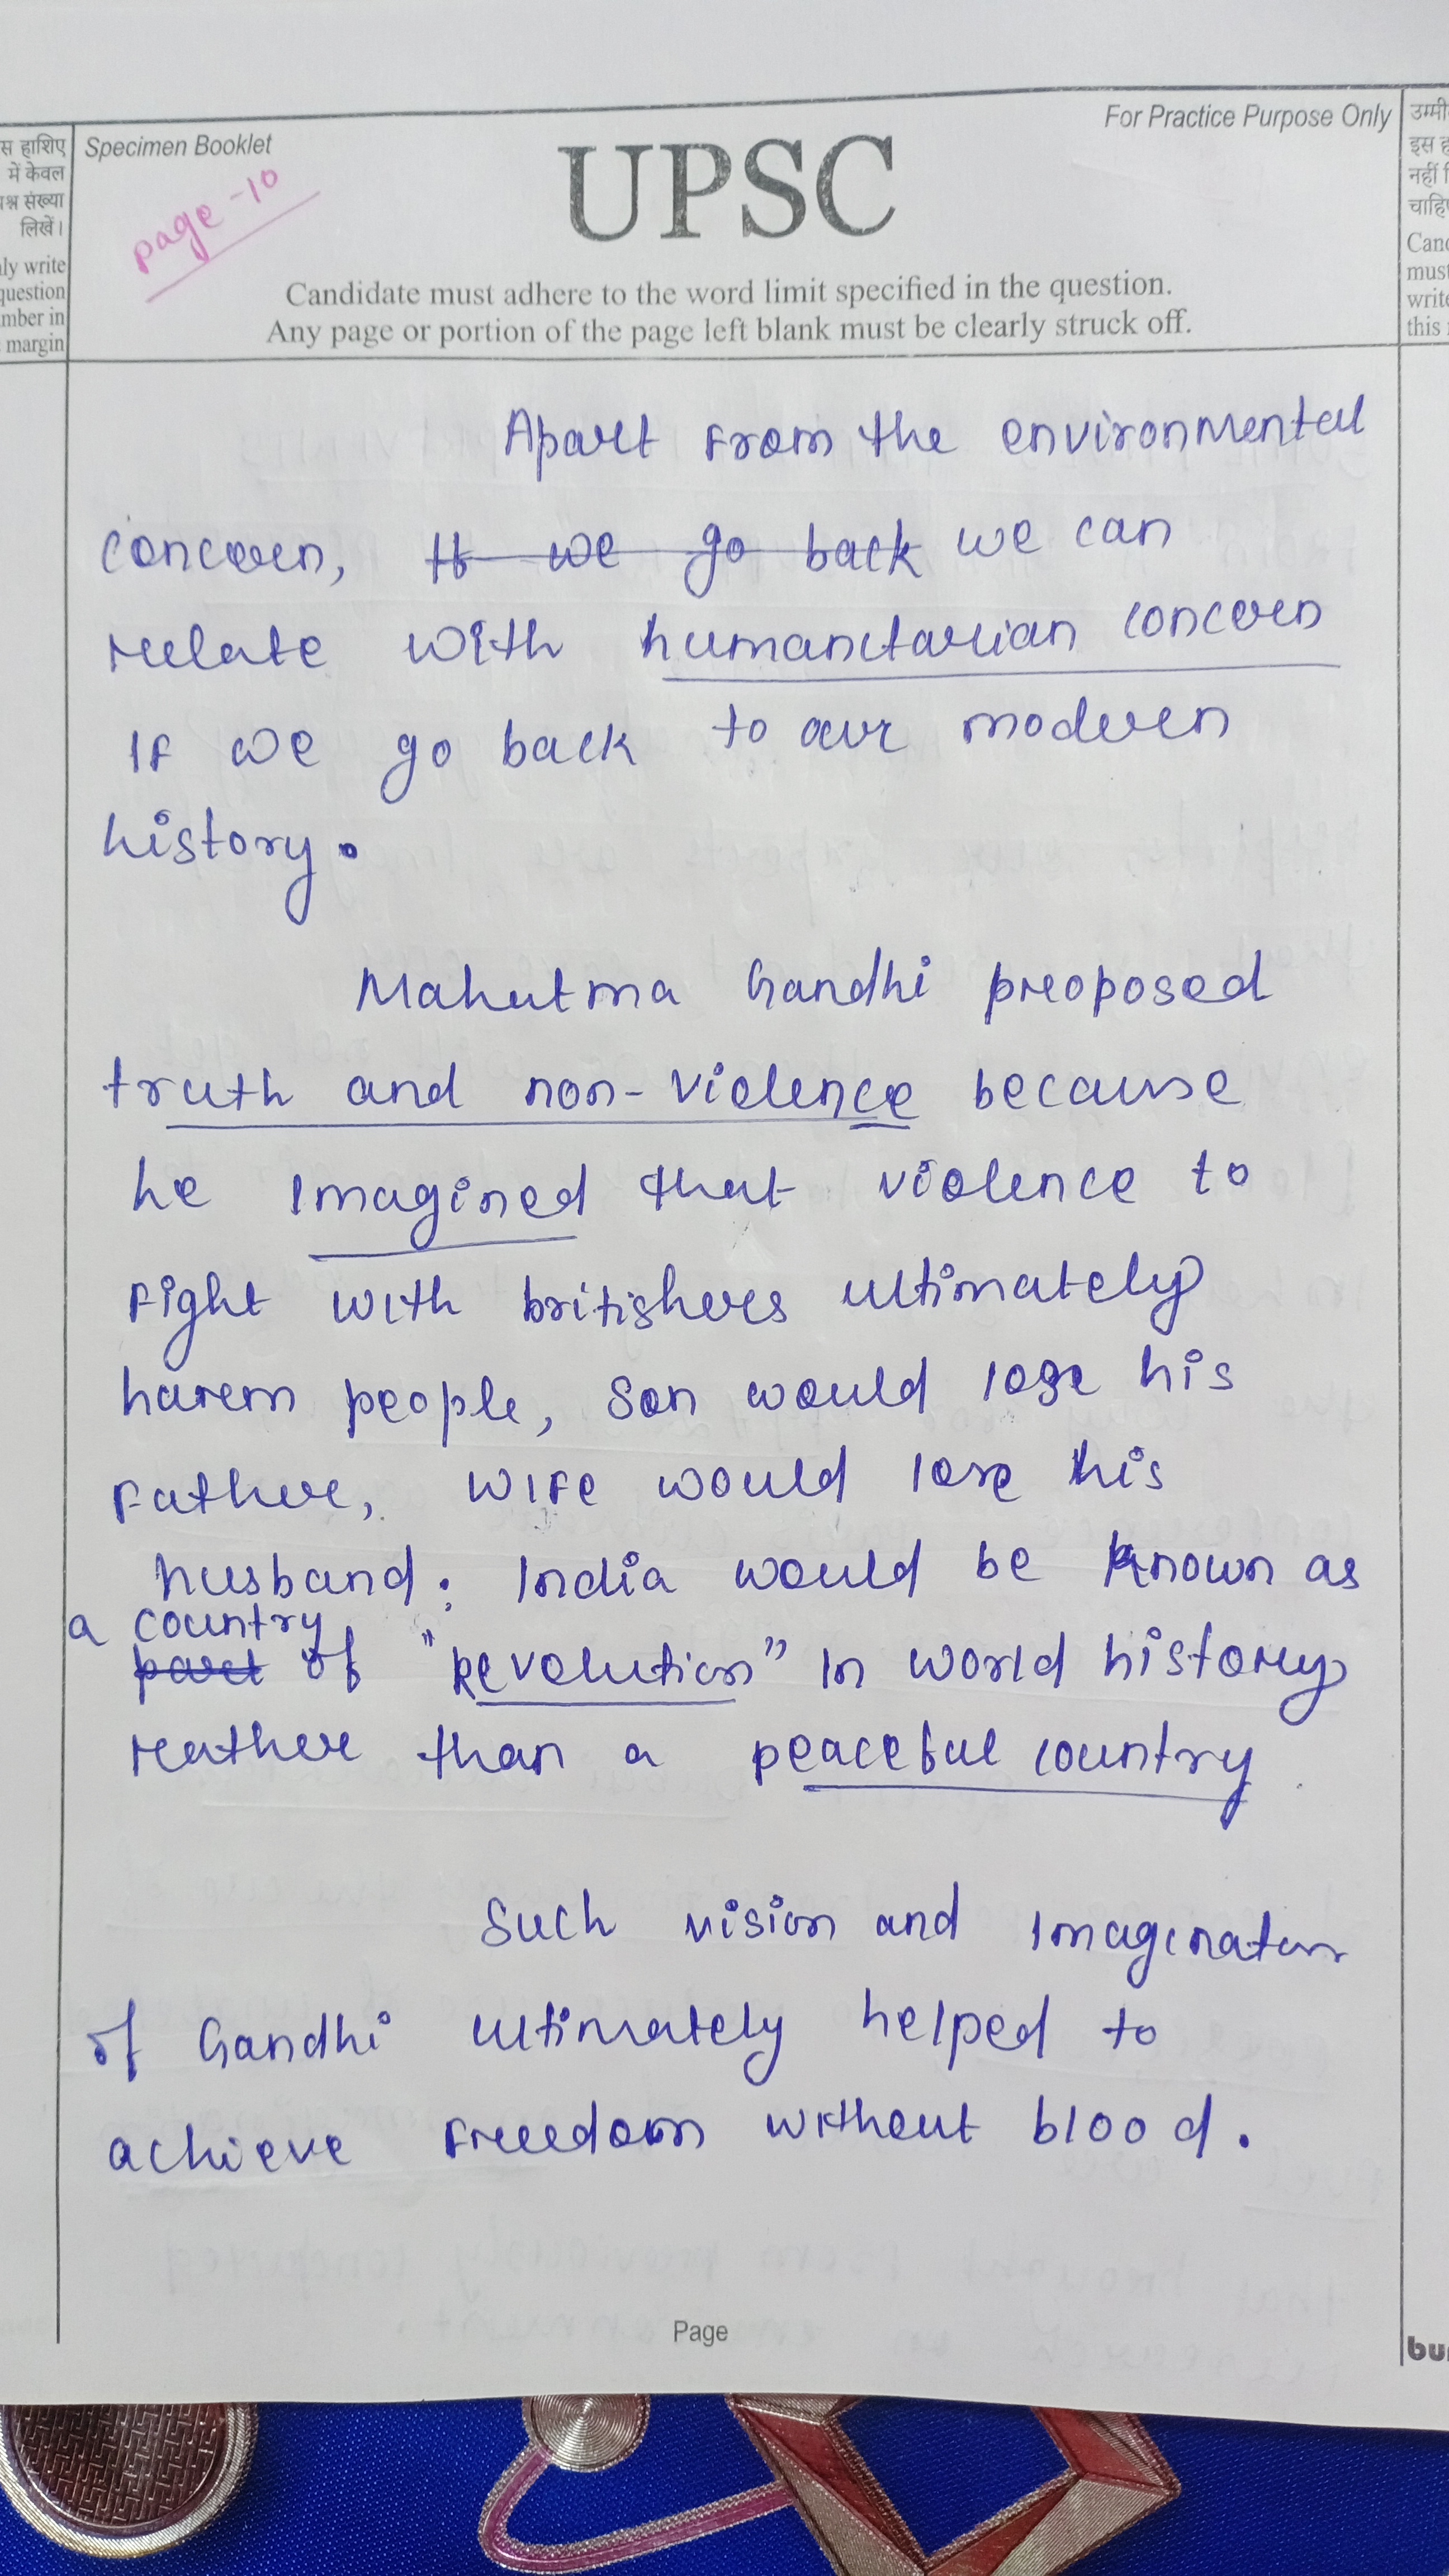 स हाशिए
में केवल
श्न संख्या
लिखें।
ly write
question
mber in
margin
Specimen Booklet
page-10
UPSC
For Practice Purpose Only
Candidate must adhere to the word limit specified in the question.
Any page or portion of the page left blank must be clearly struck off.
उम्मी
इस ह
नहीं
चाहि
Cand
must
write
this
Apart from the environmental
concern, If we go back we can
relate with humanitarian concern
If we go back to our modern
history.
Mahatma Gandhi proposed
truth and non-violence because
he Imagined that violence to
Fight with britishers ultimately
harm people, Son would lose his
Father, wife would lose his
husband. India would be known as
a country
part of "Revolution" In world history
rather than a peaceful country
Such vision and Imagination
of Gandhi ultimately helped to
achieve Freedom without blood.
Page
bu